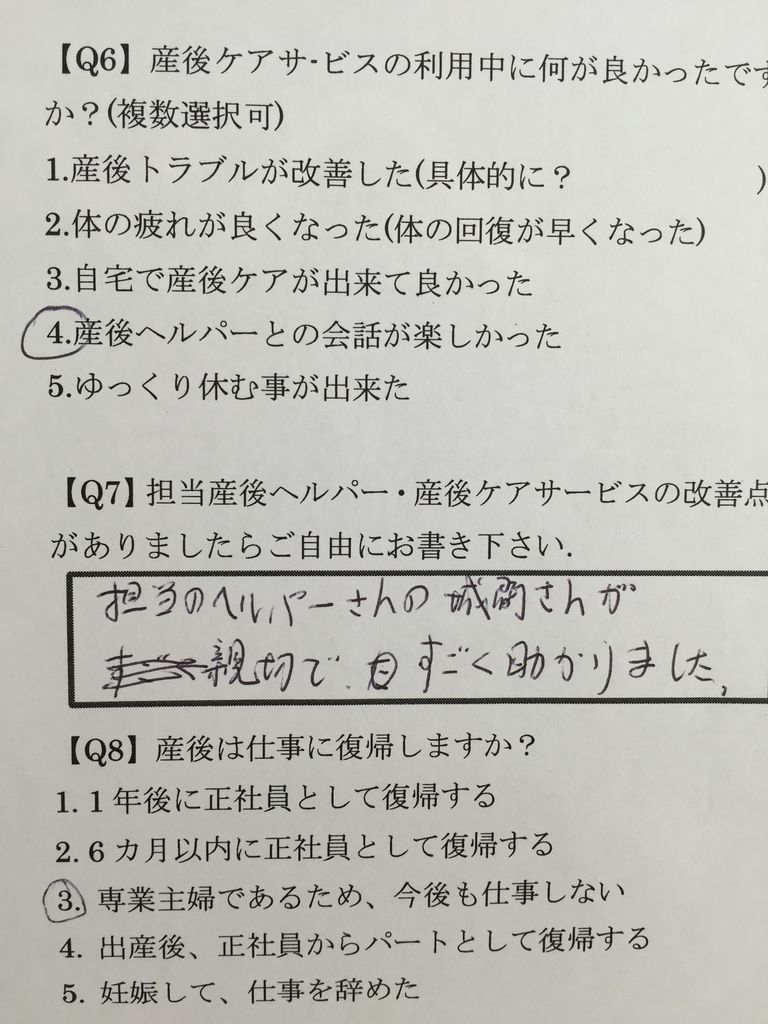 【Q6】産後ケアサ-ビスの利用中に何が良かったです
か？(複数選択可)
1.産後トラブルが改善した(具体的に？ )
2.体の疲れが良くなった(体の回復が早くなった)
3.自宅で産後ケアが出来て良かった
4.産後ヘルパーとの会話が楽しかった
5.ゆっくり休む事が出来た
【Q7】担当産後ヘルパー・産後ケアサービスの改善点
がありましたらご自由にお書き下さい.
担当のヘルパーさんの城間さんが
親切で、すごく助かりました。
【Q8】産後は仕事に復帰しますか？
1. 1年後に正社員として復帰する
2. 6カ月以内に正社員として復帰する
3. 専業主婦であるため、今後も仕事しない
4. 出産後、正社員からパートとして復帰する
5. 妊娠して、仕事を辞めた